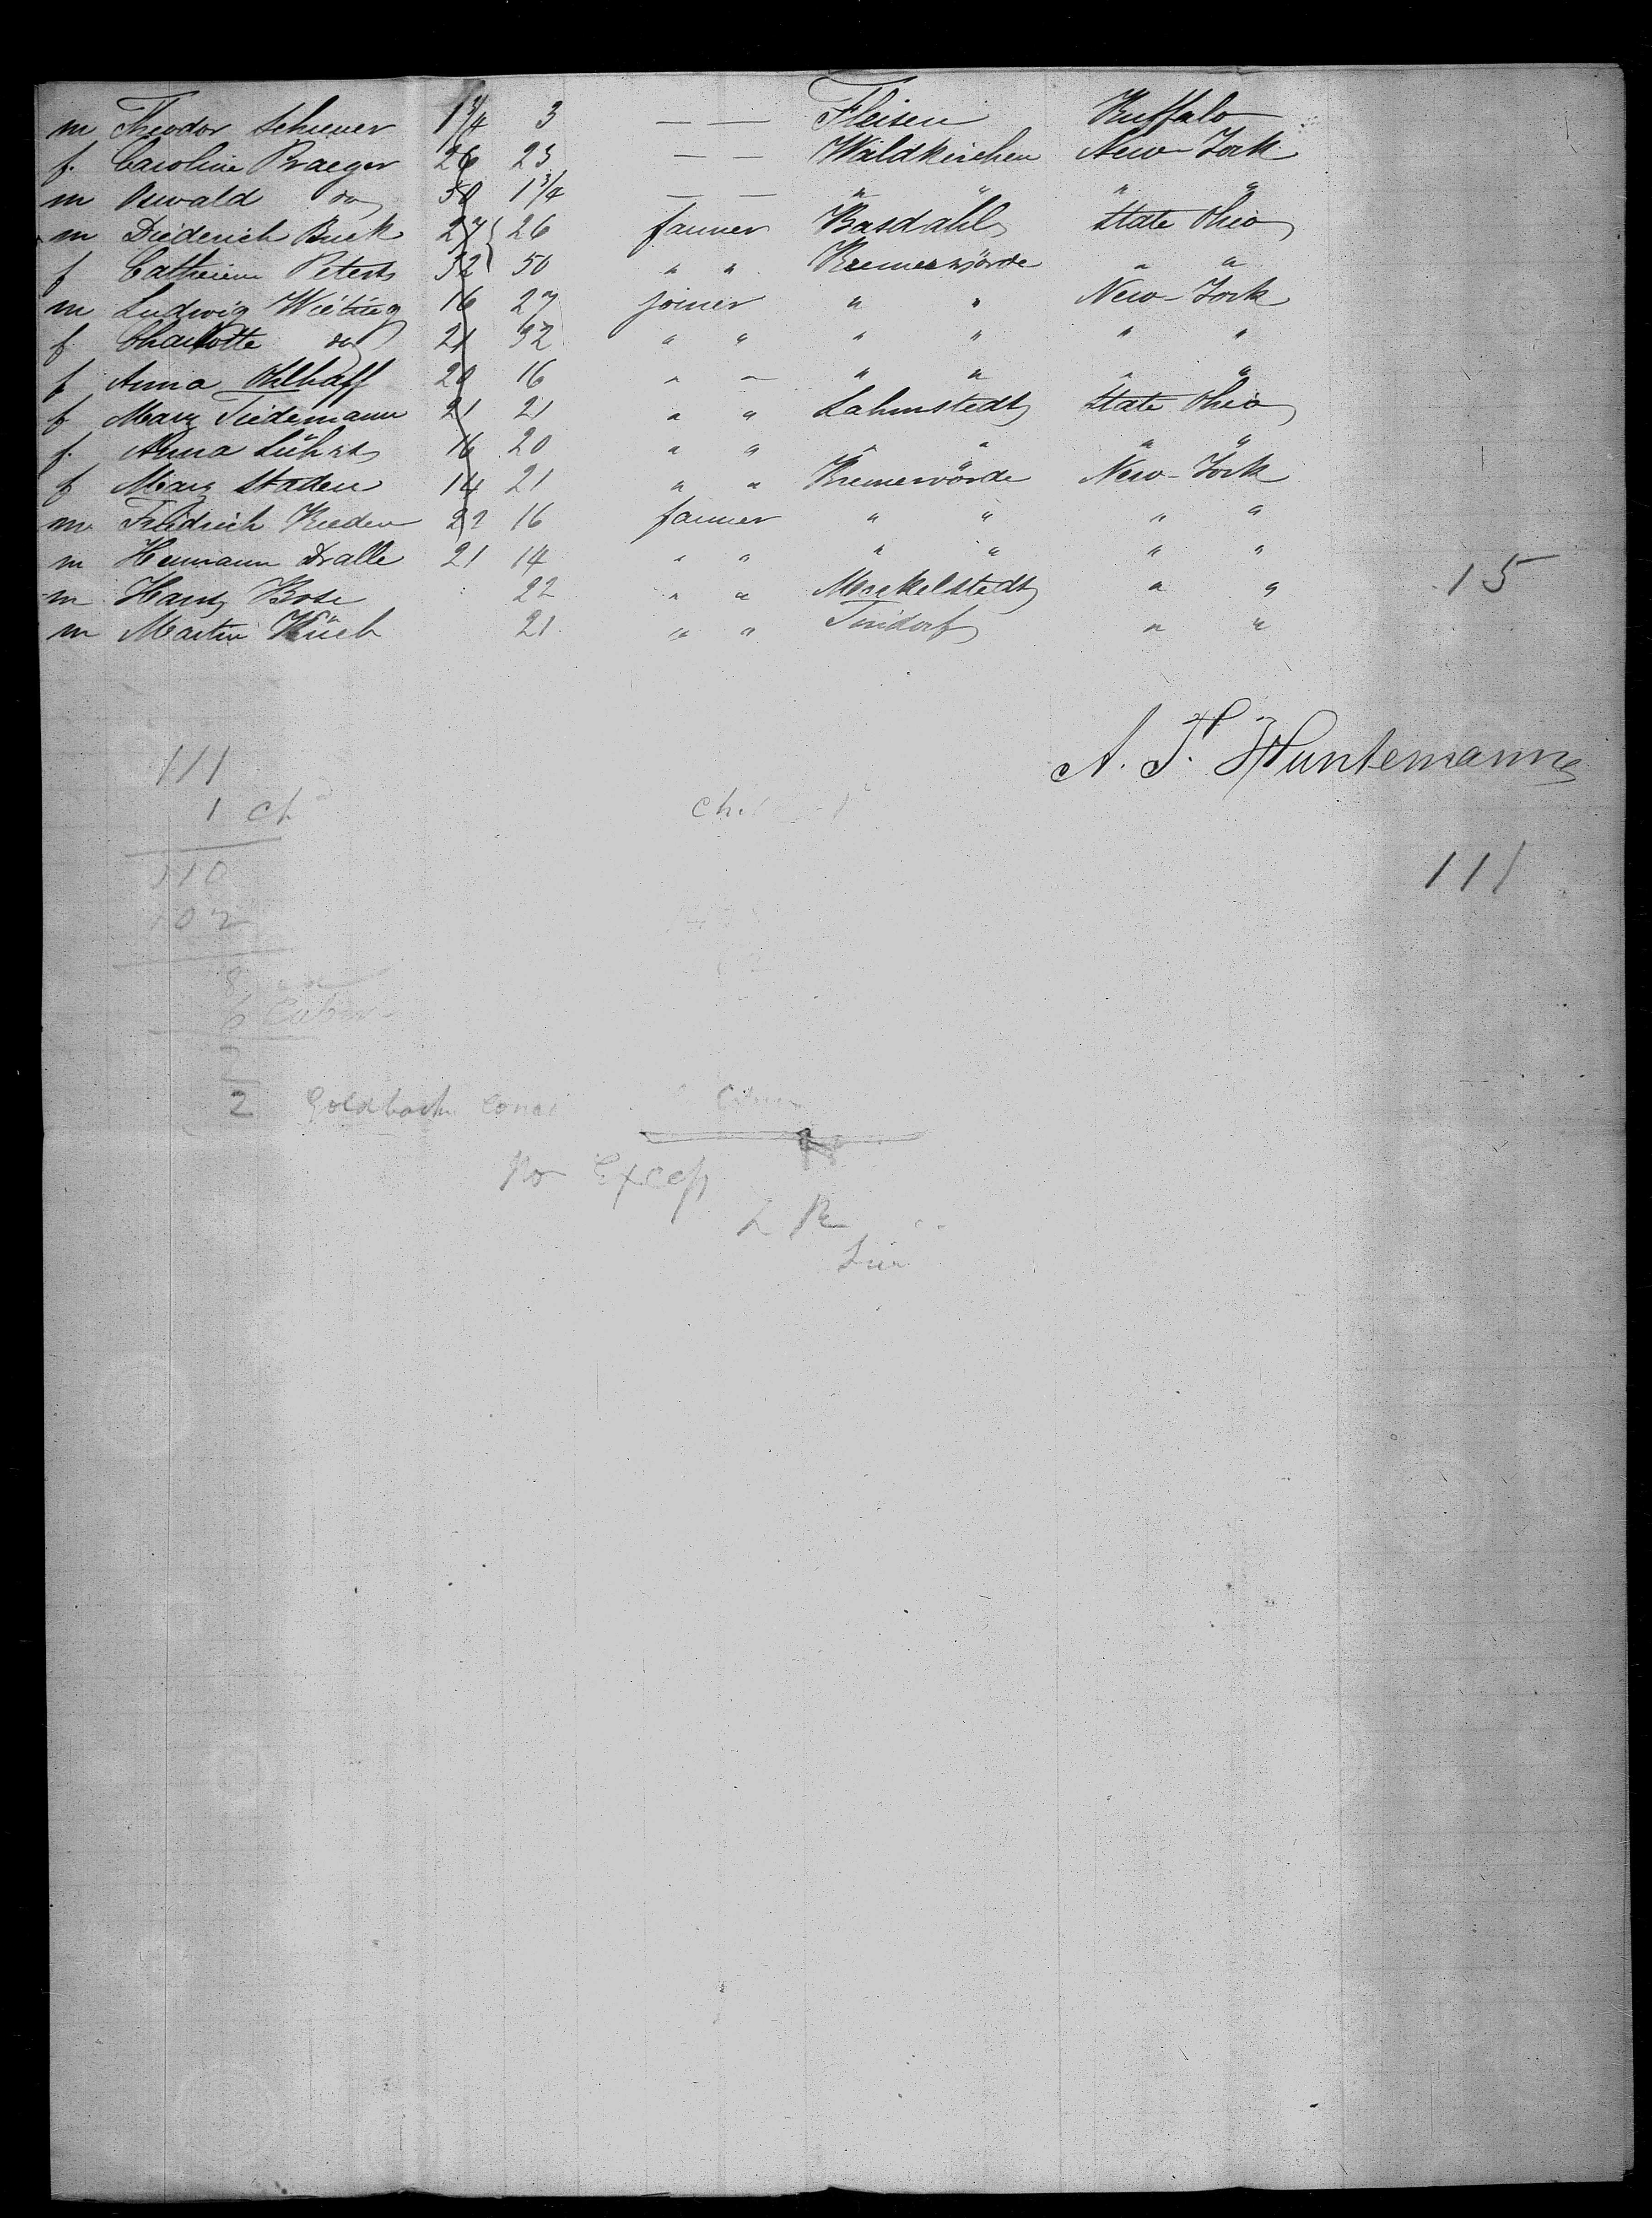 m Theodor Scheuer 1 3/4 3 — — Fleisen Buffalo
f. Caroline Praeger 26 23 — — Waldkirchen New-York
m Oswald do 50 1 3/4 — — " " " "
m Diederich Buck 27 26 farmer Basdahl State Ohio
f Catharine Peters 32 50 " " Bremervörde " "
m Ludwig Wiebting 16 27 joiner " " New-York
f. Charlotte do 21 32 " " " " " "
f Anna Ohlhaff 20 16 " " " " " "
f Mary Tiedemann 21 21 " " Lahmstedt State Ohio
f. Anna Lührs 16 20 " " " " " "
f Mary Staden 14 21 " " Bremervörde New-York
m Fridrich Breden 22 16 farmer " " " "
m Hermann Dralle 21 14 " " " " " "
m Hans Bose 22 " " Meckelstedt " " 15
m Martin Küch 21 " " Tindorf " "
A. F. Huntemann
111
1 ch
110
102
8
6 Cabin
2 Goldbach
111
No Excess